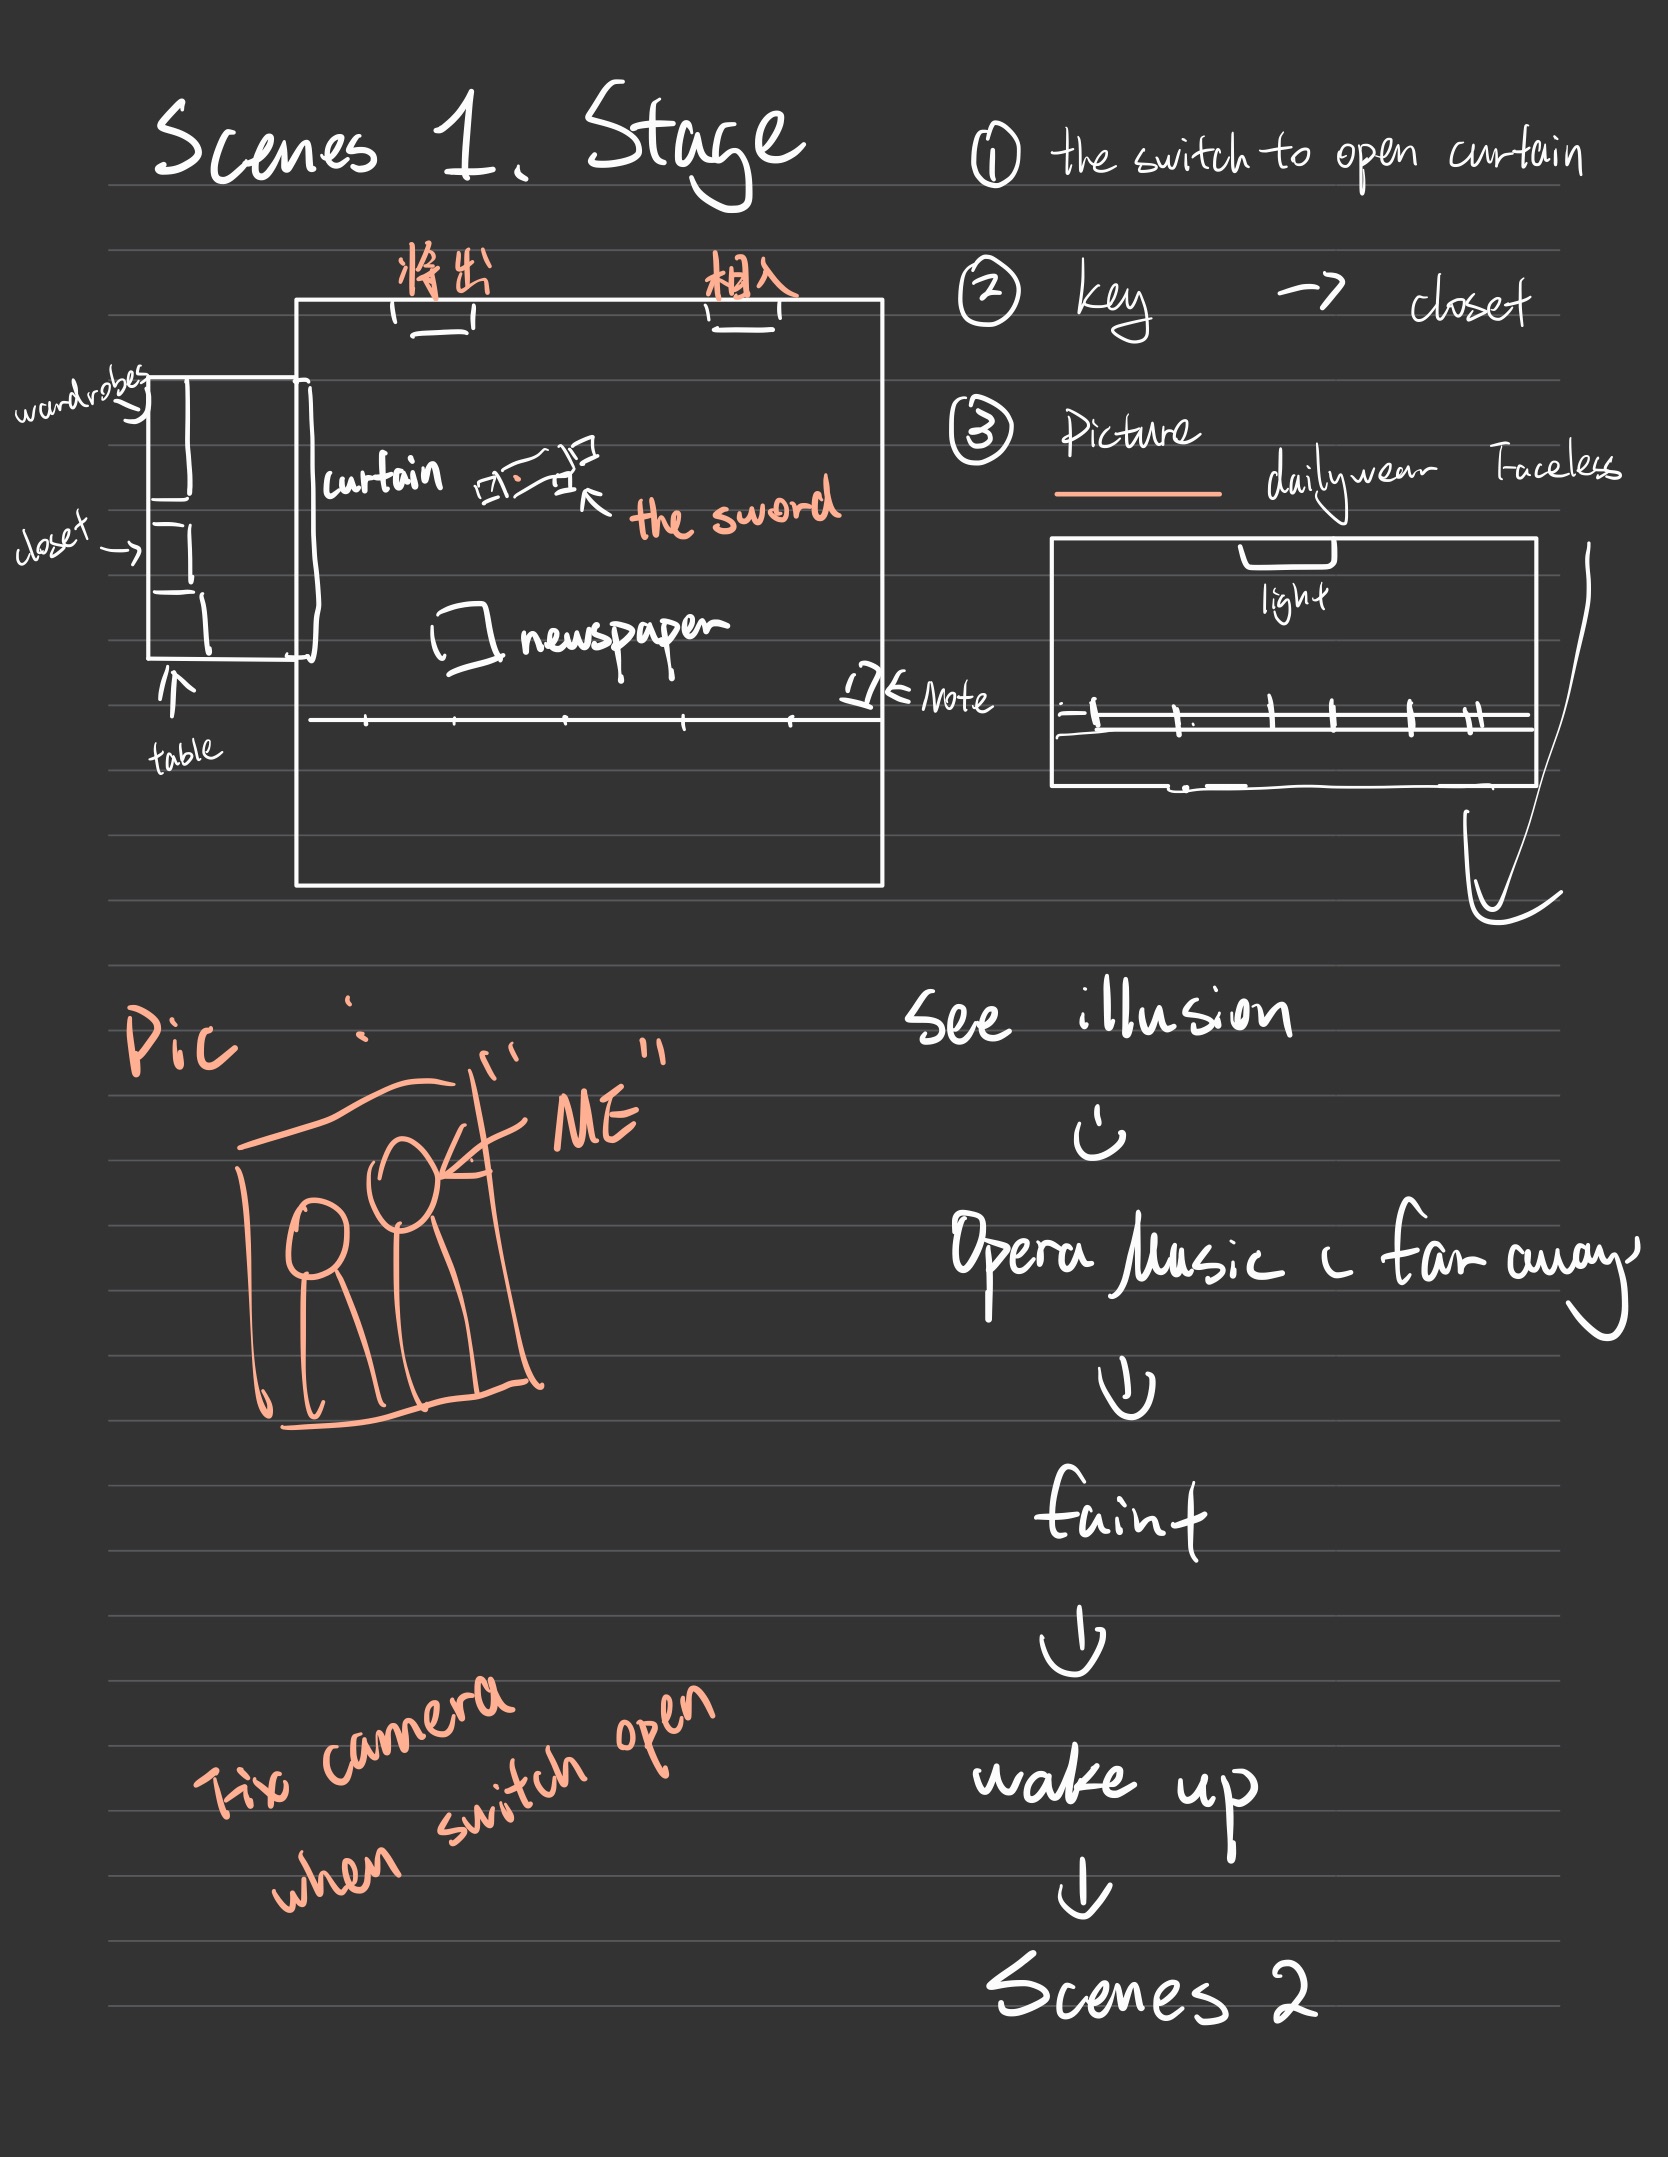 Scenes 1. Stage
① the switch to open curtain
② key → closet
③ Picture
dailywear Faceless
将出 相入
wardrobes
closet →
table
curtain
the sword
newspaper
← Note
light
Pic :
"ME"
see illusion
↓
Opera Music ( far away )
↓
faint
↓
wake up
↓
Scenes 2
Fix camera
when switch open